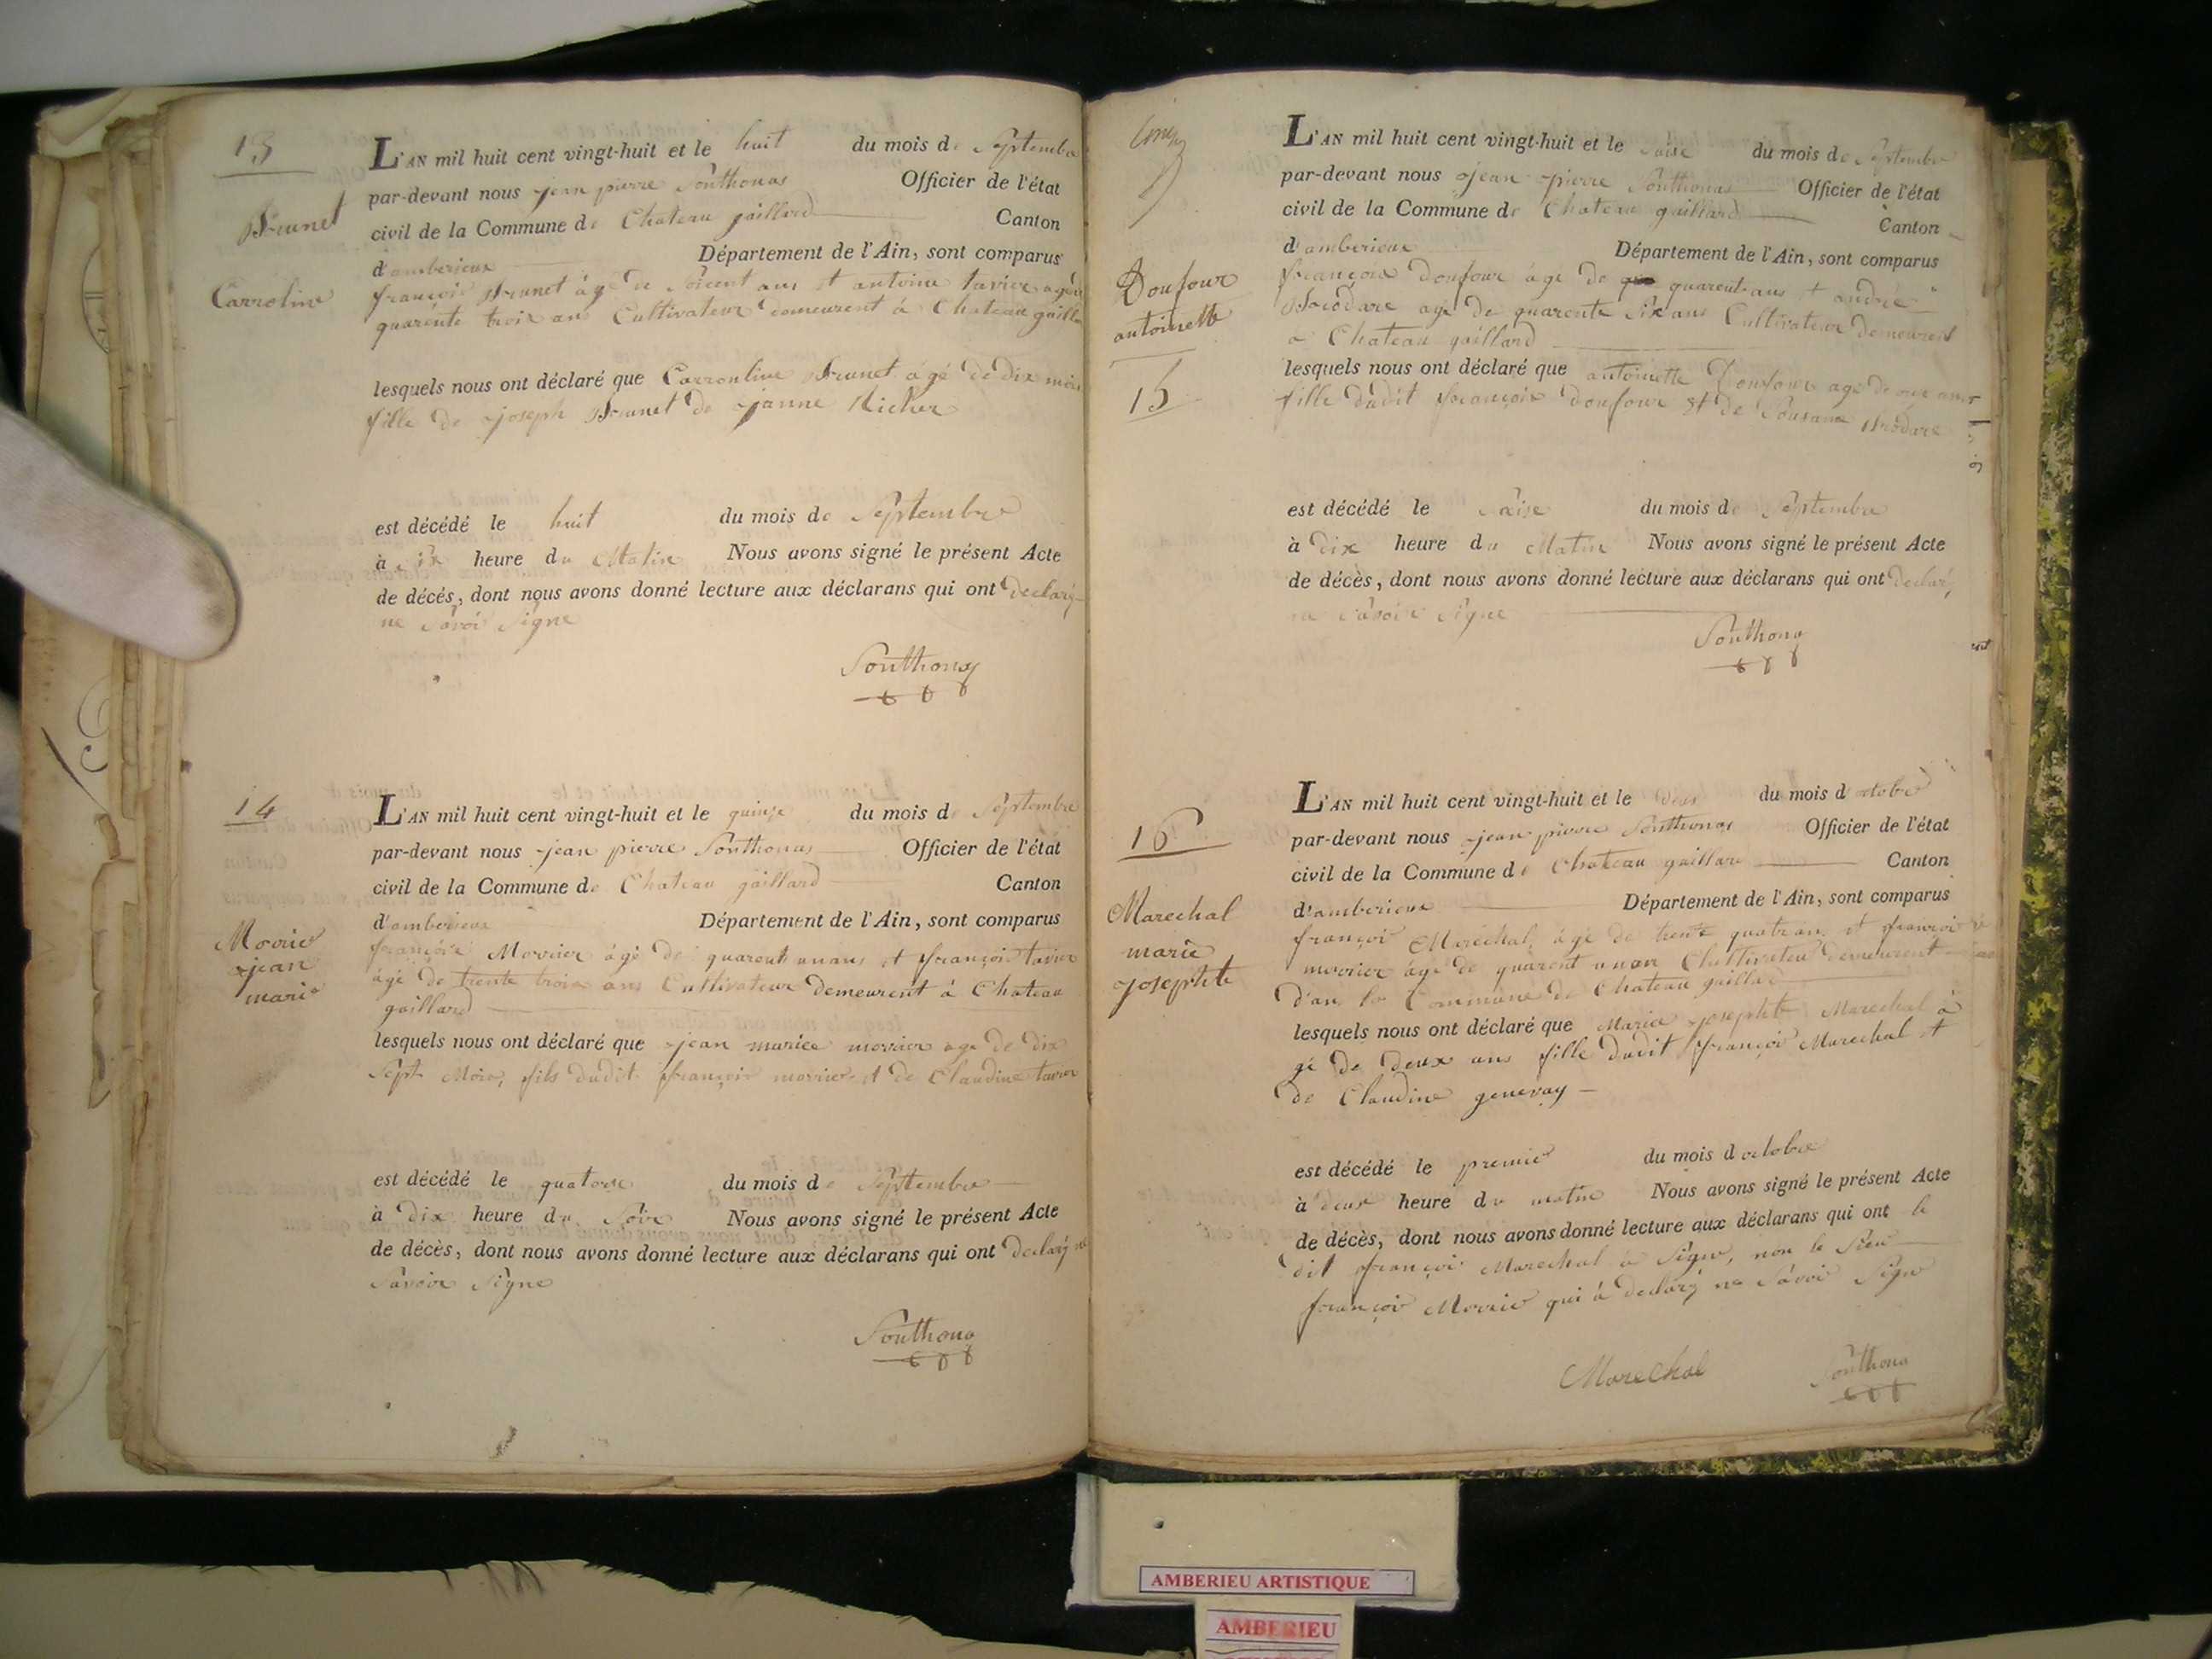 13
Brunet
Carroline
L'AN mil huit cent vingt-huit et le huit du mois de Septembre
par-devant nous jean pierre Southonas Officier de l'état
civil de la Commune de Chateau gaillard Canton
d'amberieux Département de l'Ain, sont comparus
françois Brunet âgé de ans et antoine tavier agé de
quarente troix ans Cultivateur demeurent à Chateau gaillar
lesquels nous ont déclaré que Carronline Brunet âgé de dix mois
fille de joseph Brunet de janne Richer
est décédé le huit du mois de Septembre
à six heure du Matin Nous avons signé le présent Acte
de décés, dont nous avons donné lecture aux déclarans qui ont declarý
ne Savoi Signe
Southonas
14
Movrier
jean
marie
L'AN mil huit cent vingt-huit et le quinze du mois de Septembre
par-devant nous jean pierre Southonas Officier de l'état
civil de la Commune de Chateau gaillard Canton
d'amberieux Département de l'Ain, sont comparus
françois Movrier âgé de quarent unans et françois tavier
âgé de trente troix ans Cultivateur demeurent à Chateau
gaillard
lesquels nous ont déclaré que jean mariee movrier age de dix
Sept Mois, fils dudit françois movrier et de Claudine tavier
est décédé le quatorse du mois de Septembre
à dix heure du Soir Nous avons signé le présent Acte
de décès, dont nous avons donné lecture aux déclarans qui ont declarý ne
Savoir Signe
Southona
Doufour
antoinette
15
L'AN mil huit cent vingt-huit et le Saise du mois de Septembre
par-devant nous jean pierre Southonas Officier de l'état
civil de la Commune de Chateau gaillard Canton
d'amberieux Département de l'Ain, sont comparus
françois Doufour âgé de quarent ans et andrée
Brodare age de quarente Six ans Cultivateur demeurent
a Chateau gaillard
lesquels nous ont déclaré que antoinette Doufour age de ans
fille dudit françois doufour et de Sousane Brodare
est décédé le Saise du mois de Septembre
à dix heure du Matin Nous avons signé le présent Acte
de décès, dont nous avons donné lecture aux déclarans qui ont declarý
ne Savoir Signe
Southona
16
Marechal
marie
josephte
L'AN mil huit cent vingt-huit et le deus du mois d'octobre
par-devant nous jean pierre Southonas Officier de l'état
civil de la Commune de Chateau gaillard Canton
d'amberieux Département de l'Ain, sont comparus
françoi Marechal, âgé de trente quatr an, et françois
movrier âgé de quarent unan Cultivateur demeurent
d'an la Commune de Chateau gaillard
lesquels nous ont déclaré que Marie josephte Marechal â
gé de deux ans fille dudit françoi Marechal et
de Claudine genevay
est décédé le premier du mois d octobre
à deus heure du matin Nous avons signé le présent Acte
de décès, dont nous avons donné lecture aux déclarans qui ont le
dit françoi Marechal à Signe, non le Sieu
françoir Movrier qui â declarý ne Savoir Signe
Marechal Southona
AMBERIEU ARTISTIQUE
AMBERIEU